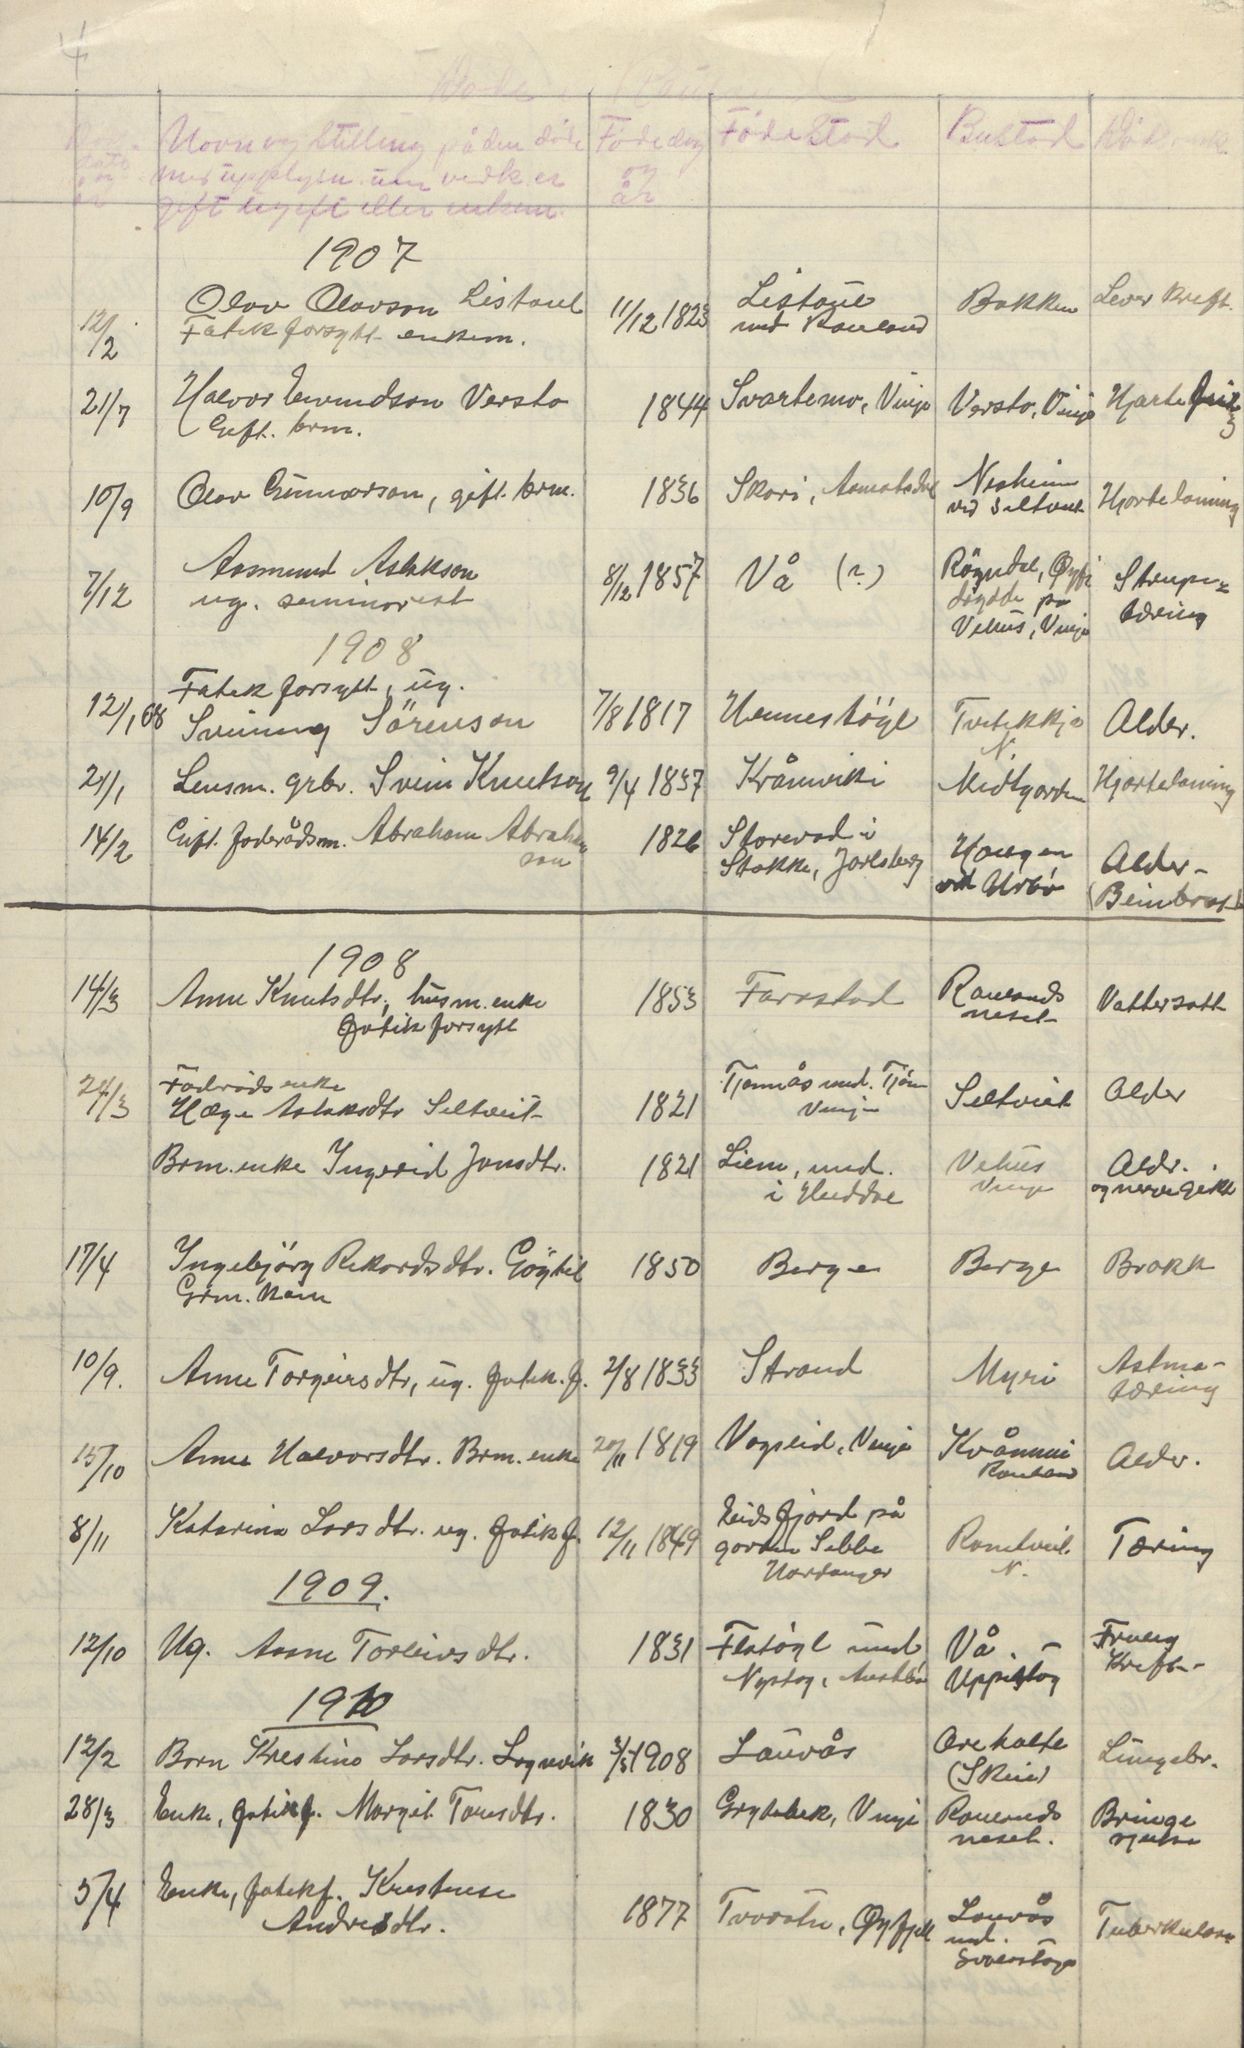 4
Døde i
Døds- dato
Navn og stilling på den døde
med upplysn. um vedk. er
gift ugift eller enkem.
Fødedag
og
år
Fødestad
Bustad
1907
12/2
Olav Olavson Listaul
Fatik forsytt enkem.
11/12 1823
Listaul
und Rauland
Bakken
Lever kreft.
21/7
Halvor Eivindson Versto
Gift. brm.
1844
Svartemo, Vinje
Versto, Vinje
Hjarte
10/9
Olav Gunnarson, gift. brm.
1836
Skori, Aamotsdal
Nesheim
ved Seltveit
Hjartelaming
7/12
Aasmund Aslakson
ug. seminarist
8/12 1857
Vå (?)
Røgndal, Øyfj
døydde på
Vehus, Vinje
Strupe-
tæring
1908
12/1 08
Fatik forsytt, ug.
Sveinung Sörenson
7/8 1817
Hennestöyl
Tveitekkja
N.
Alder.
21/1
Lensm. grbr. Svein Knutson
9/4 1837
Kråmviki
Midtgarden
Hjartelaming
14/2
Gift. foderådsm. Abraham Abraham
son
1826
Storevad i
Stokke, Jarlsberg
Haugen
ved Urbö
Alder -
(Beinbrot)
1908
14/3
Anne Knutsdtr, husm. enke
fatik forsytt
1853
Farastad
Raulands
neset
Vattersott
24/3
Foderåds enke
Hæge Aslaksdtr Seltveit
1821
Tjønnås und. Tjönn
Vinje
Seltveit
Alder
Brm. enke Ingerid Jonsdtr.
1821
Liem, und.
i Huddal
Vehus
Vinje
Aldr.
og nerve gikt
17/4
Ingebjörg Rikardsdtr. Göytil
Grm. kåne
1850
Berge
Berge
Brokk
10/9.
Anne Torgeirsdtr, ug. fatik. f.
2/8 1833
Strand
Myri
Astma-
tæring
15/10
Anne Halvorsdtr. Brm. enke
20/11 1819
Vagslid, Vinje
Kvåmmi
Rauland
Alder.
8/11
Katarina Larsdtr. ug. fatik f.
12/11 1849
Eidsfjord på
garden Sebbe
Hardanger
Romtveit.
N.
Tæring
1909.
12/10
Ug. Aasne Torleivsdtr.
1831
Flatöyl und
Nystog, Austbö
Vå
Uppistog
Kreft
1910
12/2
Born Krestine Larsdtr. Lognvik
3/5 1908
Lauvås
Arehalte
(Skien)
Lungebr.
28/3
Enke, fatikf. Margit Tonesdtr.
1830
Grytebek, Vinje
Raulands
neset.
Bringe
sjuke
5/4
Enke, fatikf. Krestense
Andresdtr.
1877
Øyfjell
Lauvås
und.
Tuberkulose